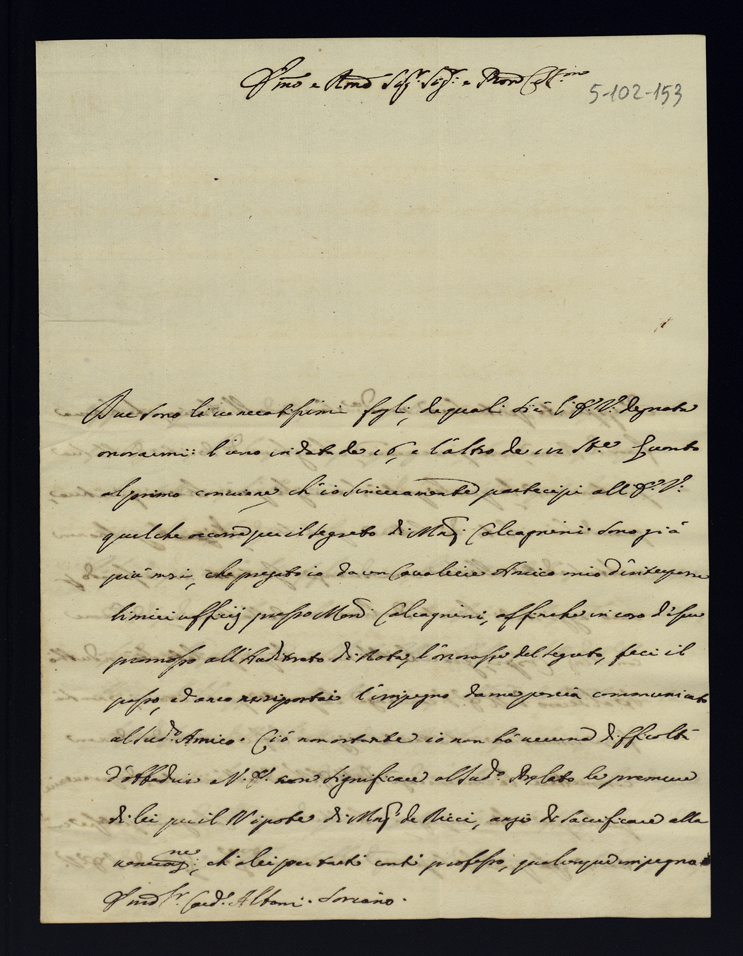 Emo e Rmo Sigr. Sigr. e Pron Col.mo
5-102-153
Due sono li veneratissimi fogli, de quali si è l'E.V. degnata
onorarmi: l'uno in data de 16, e l'altro de 22 Quanto
al primo conviene, ch'io sinceramente partecipi all'E.V.
quel che occorre per il segreto di Monsr Calcagnini. Sono già
più mesi, che pregato io da un Cavaliere Amico mio d'interporre
li miei ufficij presso Monsr Calcagnini, affinche in caso di sua
promossa all'Auditorato di Rota, l'onorasse del segreto, feci il
passo, ed anco ne riportai l'impegno da me poscia communicato
al sudo. Amico. Ciò nonostante io non hò veruna difficoltà
d'obbedire V.E. con significare al sudo. Prelato le premure
di lei per il Nipote di Monsr de Ricci, anzi di sacrificare alla
venerazne, ch'a lei per tanti conti professo, qualunque impegno
Sr. Card. Albani. Soriano.